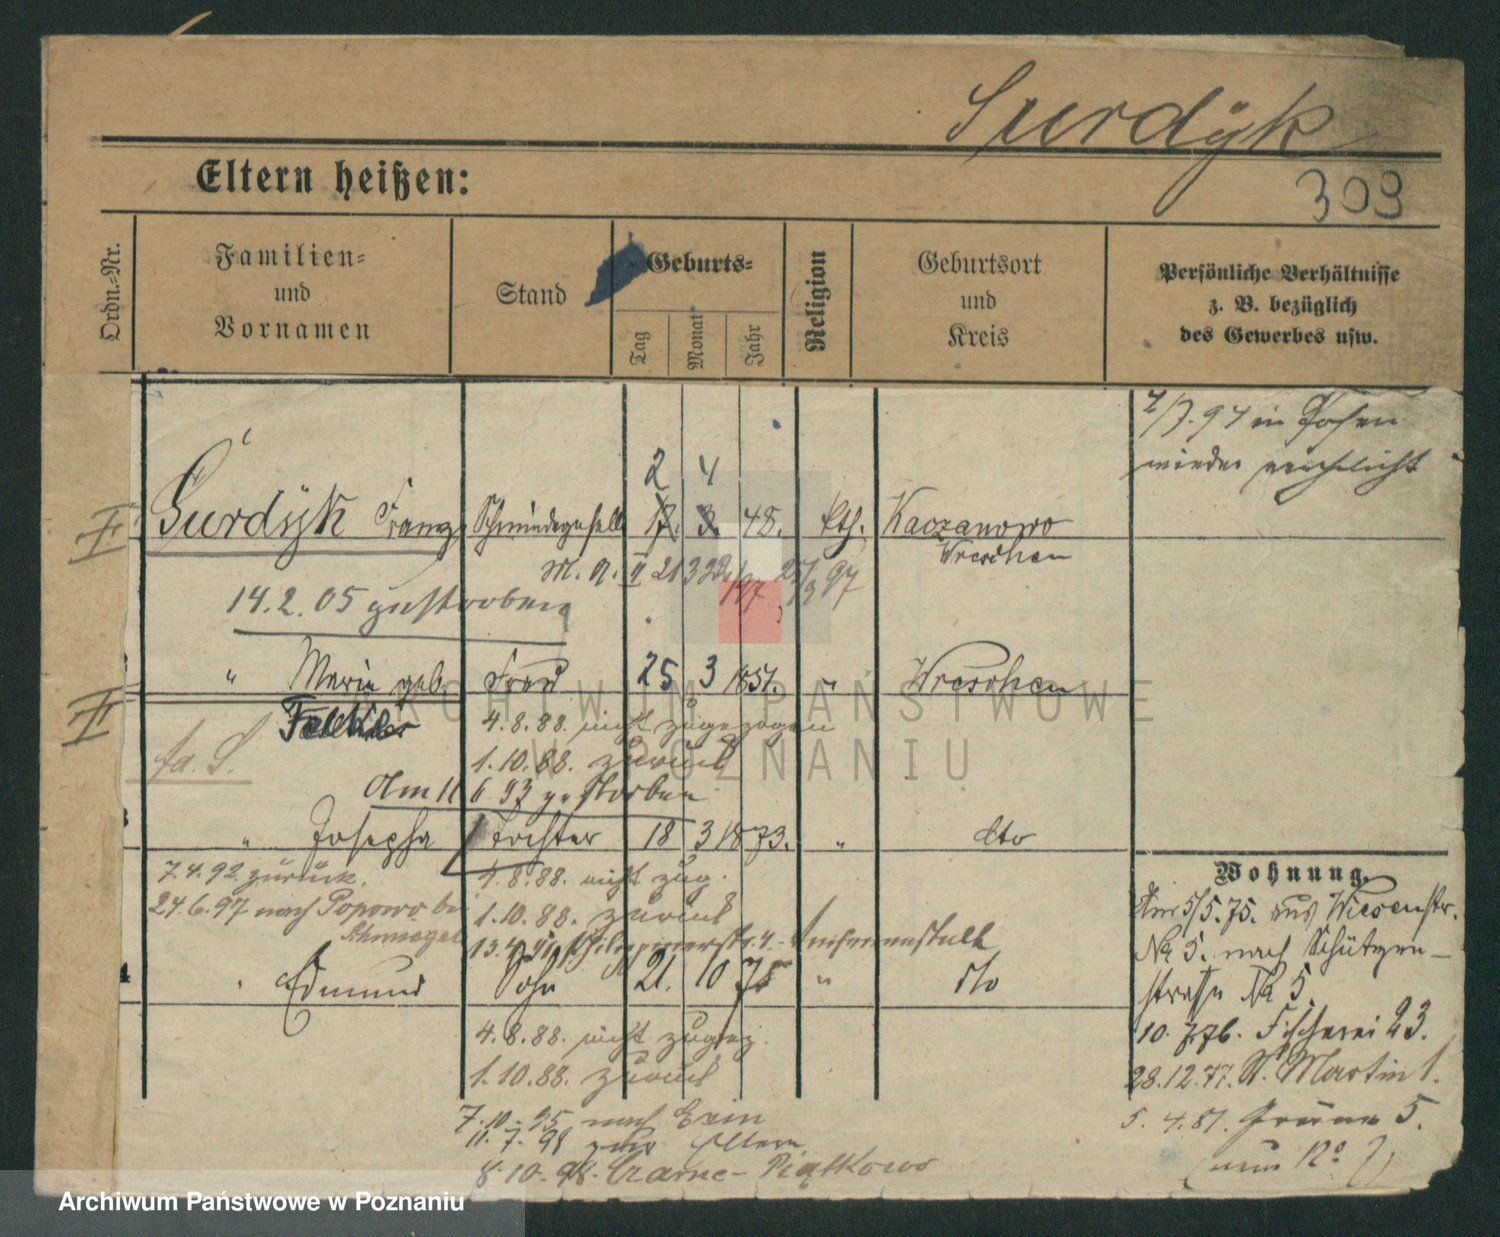 Surdyk
Eltern heißen:
309
Ordn.-Nr.
Familien-
und
Vornamen
Stand
Geburts-
Tag
Monat
Jahr
Religion
Geburtsort
und
Kreis
Persönliche Verhältnisse
z. B. bezüglich
des Gewerbes usw.
in Posen
wieder
2 4
Surdyk Franz Schmiedegesell 17. 3. 48. kth. Kaczanowo
Wreschen
14.2.05 gestorben
" Marie geb. Frau 25 3 1851. " Wreschen
4.8.88. nicht zugezogen
1.10.88. zurück
Am 11 6 93 gestorben
3 " Josepha Tochter 18 3 1873. " dto
7.4.92 zurück.
4.8.88. nicht zug.
24.6.97 nach Popowo bei
1.10.88. zurück
4 " Edmund Sohn 21. 10 75 " dto
4.8.88. nicht zugez.
1.10.88. zurück
7.10.95 nach Exin
11.7.98 zur Eltern
8.10.98. Czarne-Piątkowo
Wohnung.
Am 5/5.75. aus Wiesenstr.
No 5. nach Schützen-
straße No 5.
10.7.76. Fischerei 23.
28.12.77. St. Martin 1.
5.4.81. Grüne 5.
(nun No 7)
ARCHIWUM PAŃSTWOWE
W POZNANIU
Archiwum Państwowe w Poznaniu